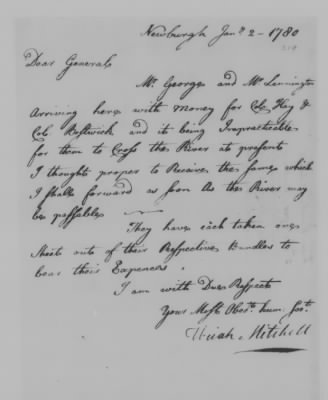 Newburgh Jany 2 - 1780
Dear General
Mr George and Mr Lennington
Arriving here with Money for Colo Hay &
Colo Bostwick and it being Impracticable
for them to Cross the River at present
I thought proper to Receive the same which
I shall forward as soon As the River may
be passable —
They have each taken one
Sheet out of their Respective Bundles to
bear their Expences.
I am with Due Respect
Your Most Obedt hum Servt
Uriah Mitchell